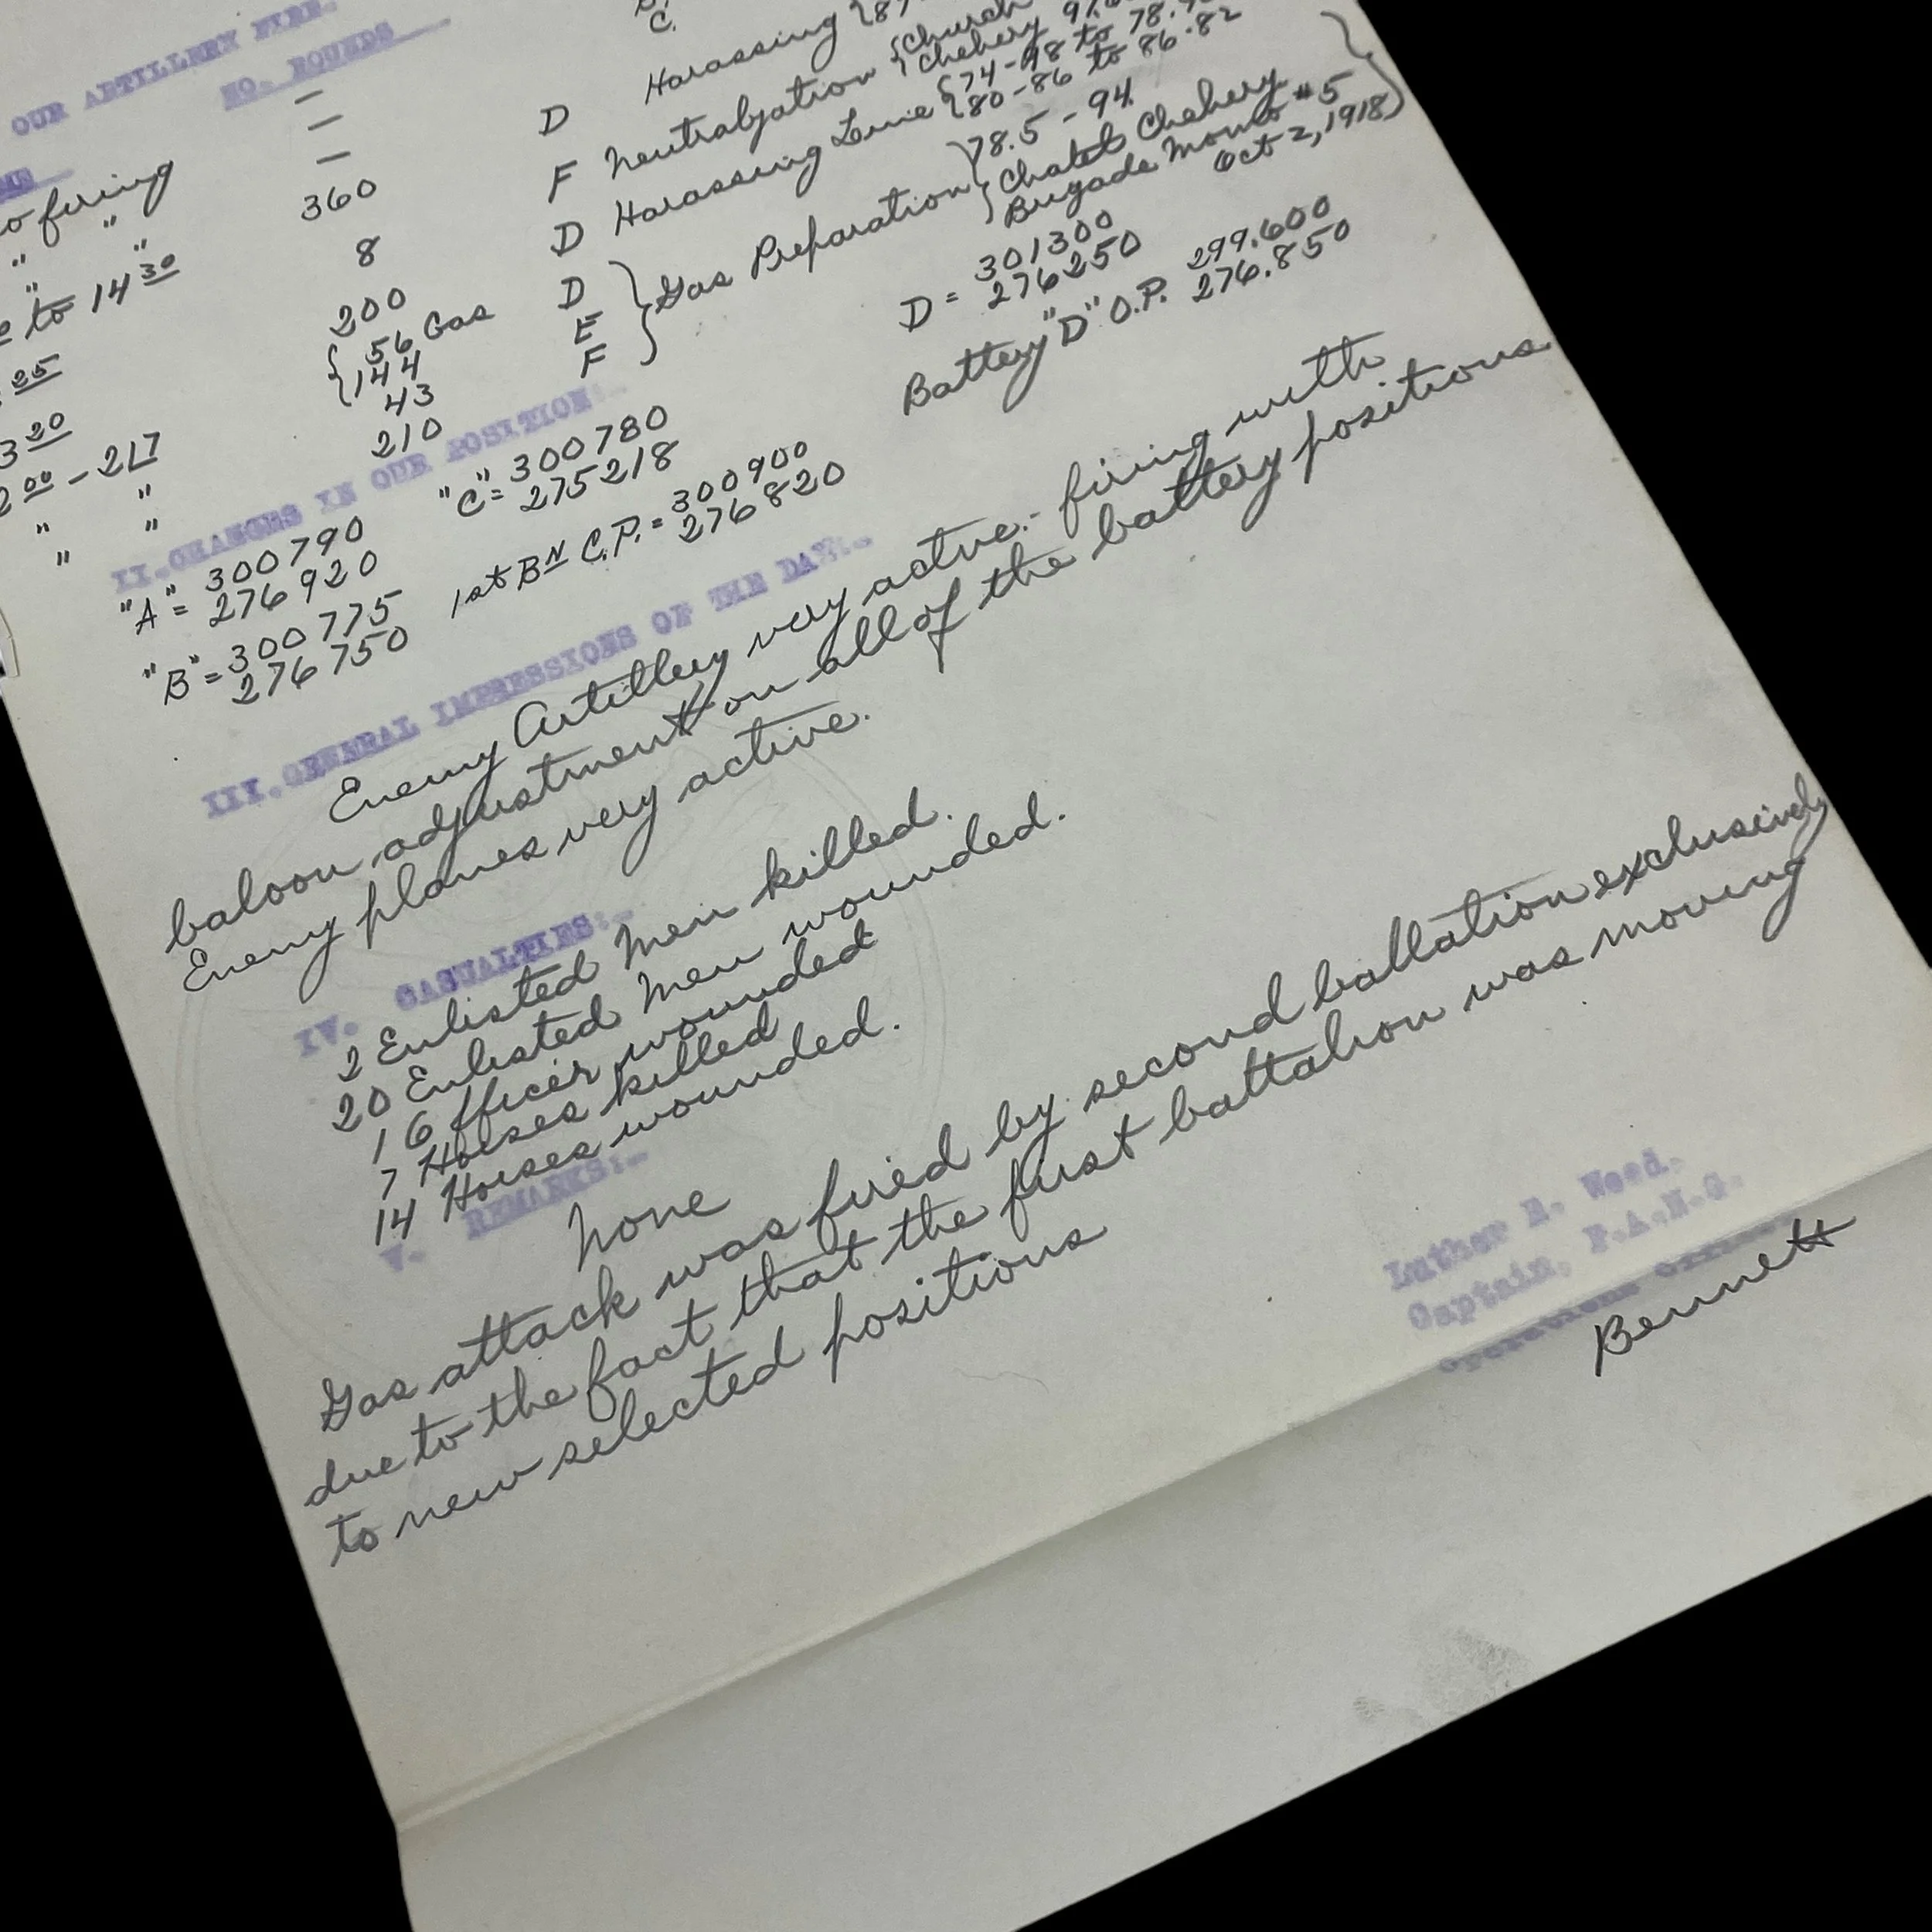 OUR ARTILLERY FIRE.
NO. ROUNDS
C.
— Harassing {87
firing — D Neutralyation {Church
" " — F Harassing Lewie {Chehery
" " 360 D 74-98 to 78.
to 14 30 8 F 80-86 to 86.82
25 200 D } 78.5 - 94
3 20 {56 Gas E } Gas Preparation {Chatel Chehery
00 - 217 144 F } Brigade Monts #5
" " 43 Oct 2, 1918)
" " 210
II. CHANGES IN OUR POSITION:-
"A" = 300790 "C" = 300780 D = 301300
276920 275218 276250
"B" = 300775 1st BN C.P. = 300900 Battery "D" O.P. 299.600
276750 276820 276.850
III. GENERAL IMPRESSIONS OF THE DAY:-
Enemy Artillery very actve.- firing with
baloon adjustment on all of the battery positions
Enemy planes very active.
IV. CASUALTIES:-
2 Enlisted Men killed.
20 Enlisted Men wounded.
1 Officer wounded
7 Horses killed
14 Horses wounded.
V. REMARKS:-
None
Gas attack was fired by second ballation exclusively
due to the fact that the first battalion was moving
to new selected positions
Luther R. Weed.
Captain, F.A.N.G.
Operations Officer
Bennett